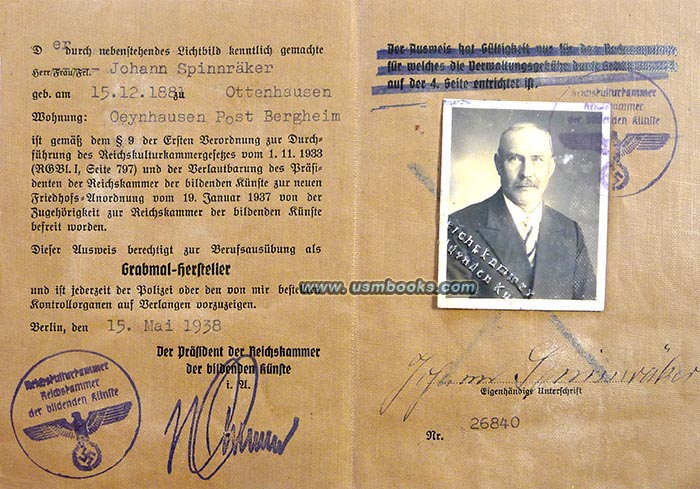 Der durch nebenstehendes Lichtbild kenntlich gemachte
Herr/Frau/Frl. Johann Spinnräker
geb. am 15.12.1881 zu Ottenhausen
Wohnung: Oeynhausen Post Bergheim
ist gemäß dem § 9 der Ersten Verordnung zur Durch-
führung des Reichskulturkammergesetzes vom 1. 11. 1933
(RGBl. I, Seite 797) und der Verlautbarung des Präsi-
denten der Reichskammer der bildenden Künste zur neuen
Friedhofs-Anordnung vom 19. Januar 1937 von der
Zugehörigkeit zur Reichskammer der bildenden Künste
befreit worden.
Dieser Ausweis berechtigt zur Berufsausübung als
Grabmal-Hersteller
und ist jederzeit der Polizei oder den von mir bestellten
Kontrollorganen auf Verlangen vorzuzeigen.
Berlin, den 15. Mai 1938
Der Präsident der Reichskammer
der bildenden Künste
i. A.
Reichskulturkammer
Reichskammer
der bildenden Künste
Der Ausweis hat Gültigkeit nur für das
für welches die Verwaltungsgebühr durch
auf der 4. Seite entrichtet ist.
Reichskulturkammer
Reichskammer
der bildenden Künste
Reichskammer
bildenden Kü
www.usmbooks.com
Johann Spinnräker
Eigenhändige Unterschrift
Nr. 26840